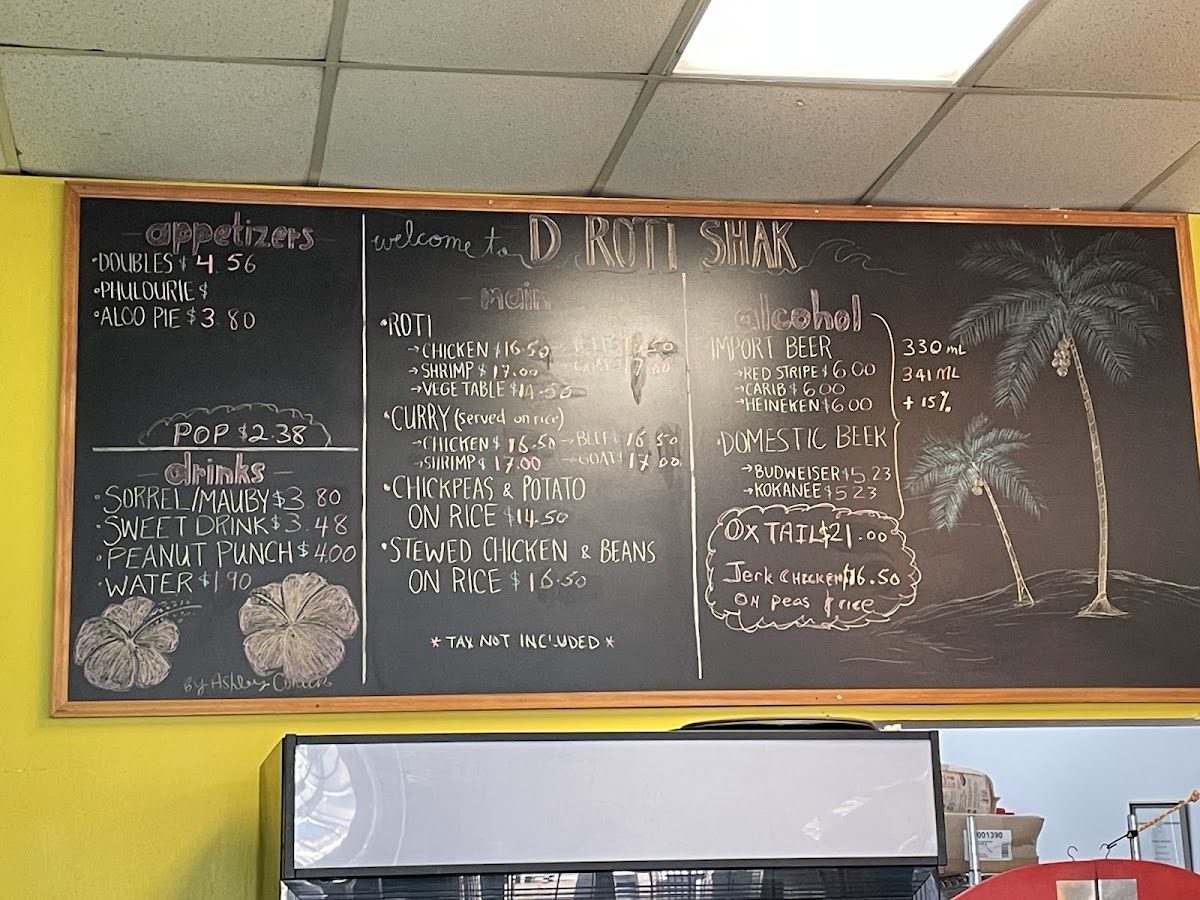 welcome to D ROTI SHAK
appetizers
•DOUBLES $ 4.56
•PHULOURIE $
•ALOO PIE $3.80
POP $2.38
drinks
•SORREL/MAUBY $3.80
•SWEET DRINK $3.48
•PEANUT PUNCH $4.00
•WATER $1.90
By Ashley
main
•ROTI
→CHICKEN $16.50
→SHRIMP $ 17.00
→VEGETABLE $14.50
•CURRY (served on rice)
→CHICKEN $ 16.50 →BEEF $ 16.50
→SHRIMP $ 17.00 →GOAT $ 17.00
•CHICKPEAS & POTATO
ON RICE $14.50
•STEWED CHICKEN & BEANS
ON RICE $16.50
*TAX NOT INCLUDED*
alcohol
•IMPORT BEER
→RED STRIPE $6.00
→CARIB $6.00
→HEINEKEN $6.00
330 mL
341 ML
+ 15%
•DOMESTIC BEER
→BUDWEISER $5.23
→KOKANEE $5.23
OX TAIL $21.00
Jerk CHICKEN $16.50
ON peas & rice
001390